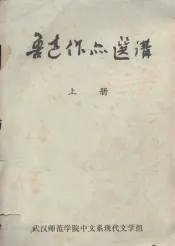 鲁迅作品選講
上册
武汉师范学院中文系现代文学组